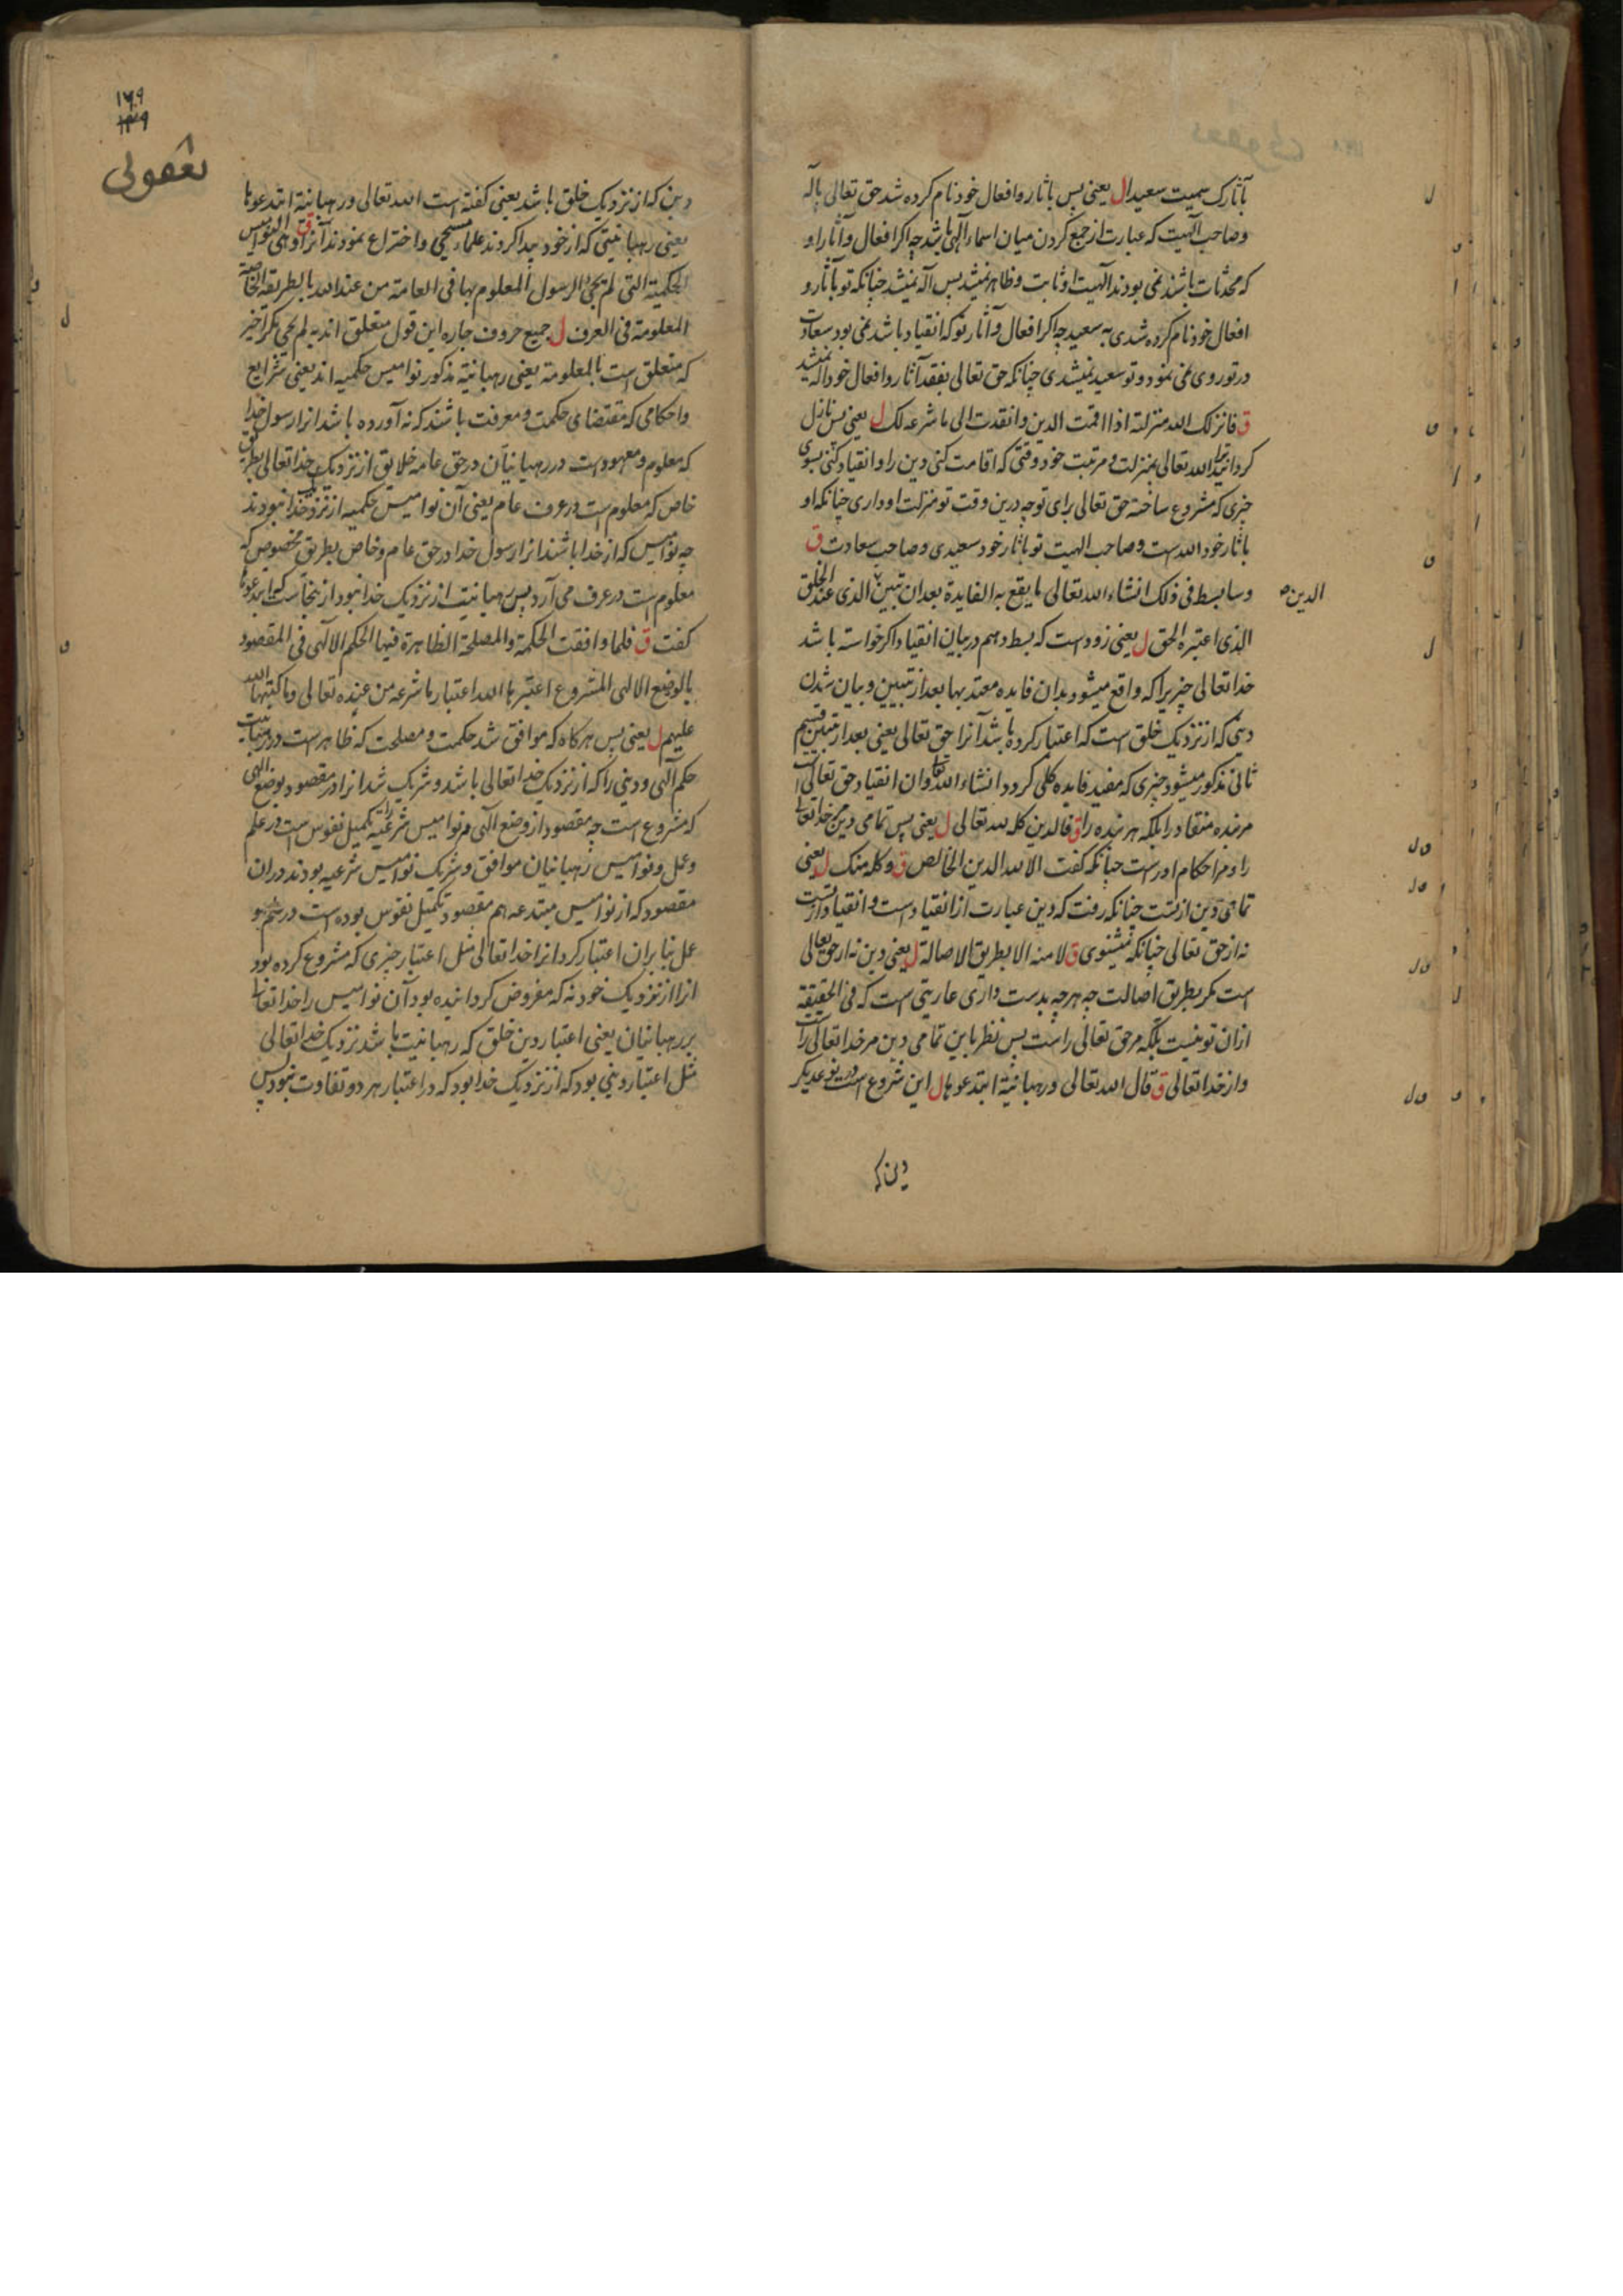 بآثارک سمیت سعیدا ل یعنی پس باثار و افعال خود نام کرده شد حق تعالی بآله
وصاحب الهیت که عبارت از جمع کردن میان اسماء الهی باشد چه اکر افعال و آثار او
که محدثات باشند نمی بودند الهیت او ثابت و ظاهر نمیشد پس آله نمیشد چنانکه تو بآثار و
افعال خود نام کرده شدی به سعید چه اکر افعال و آثار تو که انقیاد باشد نمی بود سعادت
در تو روی نمی نمود و تو سعید نمیشدی چنانکه حق تعالی بفقد آثار و افعال خود اله نمیشد
ق فانزلک الله منزلته اذا اقمت الدین وانقدت الی ما شرعه لک ل یعنی پس نازل
کردانید ترا الله تعالی بمنزلت و مرتبت خود وقتی که اقامت کنی دین را و انقیاد کنی بسوی
چیزی که مشروع ساخته حق تعالی برای تو چه درین وقت تو منزلت او داری چنانکه او
باثار خود الله است وصاحب الهیت تو باثار خود سعیدی وصاحب سعادت ق
وسابسط فی ذلک انشاء الله تعالی ما یقع به الفایدة بعد ان تبین الذی عند الخلق
الدین
الذی اعتبره الحق ل یعنی زود است که بسط دهم در بیان انقیاد اکر خواسته باشد
خدا تعالی چیزیرا که واقع میشود بدان فایده معتد بها بعد از تبیین و بیان شدن
دینی که از نزدیک خلق است که اعتبار کرده باشد آنرا حق تعالی یعنی بعد از تبیین قسم
ثانی مذکور میشود چیزی که مفید فایده کلی کردد انشاء الله تعالی وان انقیاد حق تعالی است
مر بنده منقاد را بلکه هر بنده را ق فالدین کله لله تعالی ل یعنی پس تمامی دین مر خدا تعالی
را و مر احکام اوراست چنانکه کفت الا لله الدین الخالص ق وکله منک ل یعنی
تمامی دین از تست چنانکه رفت که دین عبارت از انقیاد است و انقیاد از تست
نه از حق تعالی چنانکه میشنوی ق لا منه الا بطریق الاصالة ل یعنی دین نه از حق تعالی
است مکر بطریق اصالت چه هرچه بدست داری عاریتی است که فی الحقیقة
ازان تو نیست بلکه مر حق تعالی راست پس نظر باین تمامی دین مر خدا تعالی راست
و از خدا تعالی ق قال الله تعالی ورهبانیة ابتدعوها ل این شروع است در نوعدیکر
دین که
۱۶۹
۱۳۹
دین که از نزدیک خلق باشد یعنی کفته است الله تعالی ورهبانیة ابتدعوها
یعنی رهبانیتی که از خود پیدا کردند علماء مسیحی و اختراع نمودند آنرا ق وهی النوامیس
الحکمیة التی لم یجئ الرسول المعلوم بها فی العامة من عند الله بالطریقة الخاصة
المعلومة فی العرف ل جمیع حروف جاره این قول متعلق اند به لم یجئ مکر آخیر
که متعلق است بالمعلومة یعنی رهبانیة مذکور نوامیس حکمیه اند یعنی شرایع
واحکامی که مقتضای حکمت و معرفت باشند که نه آورده باشد انرا رسول خدا
که معلوم و معهود است در رهبانیان در حق عامه خلایق از نزدیک خدا تعالی بطریق
خاص که معلوم است در عرف عام یعنی آن نوامیس حکمیه از نزدیک خدا نبودند
چه نوامیس که از خدا باشند انرا رسول خدا در حق عام و خاص بطریق مخصوص که
معلوم است در عرف می آرد پس رهبانیت از نزدیک خدا نبود ازینجاست که ابتدعوها
کفت ق فلما وافقت الحکمة والمصلحة الظاهرة فیها الحکم الالهی فی المقصود
بالوضع الالهی المشروع اعتبرها الله اعتبار ما شرعه من عنده تعالی وما کتبها الله
علیهم ل یعنی پس هرکاه که موافق شد حکمت و مصلحت که ظاهر است در رهبانیت
حکم الهی و دینی را که از نزدیک خدا تعالی باشد و شریک شد انرا در مقصود بوضع الهی
که مشروع است چه مقصود از وضع الهی مر نوامیس شرعیه را تکمیل نفوس است در علم
وعمل و نوامیس رهبانیان موافق و شریک نوامیس شرعیه بودند دران
مقصود که از نوامیس مبتدعه هم مقصود تکمیل نفوس بوده است در علم و
عمل بنابران اعتبار کرد انرا خدا تعالی مثل اعتبار چیزی که مشروع کرده بود
انرا از نزدیک خود نه که مفروض کردانیده بود آن نوامیس را خدا تعالی
بر رهبانیان یعنی اعتبار دین خلق که رهبانیت باشد نزدیک خدا تعالی
مثل اعتبار دینی بود که از نزدیک خدا بود که در اعتبار هر دو تفاوت نبود پس